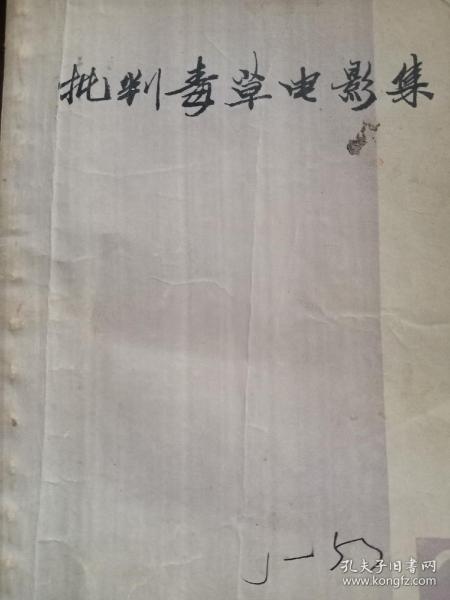 批判毒草电影集
J-53
孔夫子旧书网
www.kongfz.com